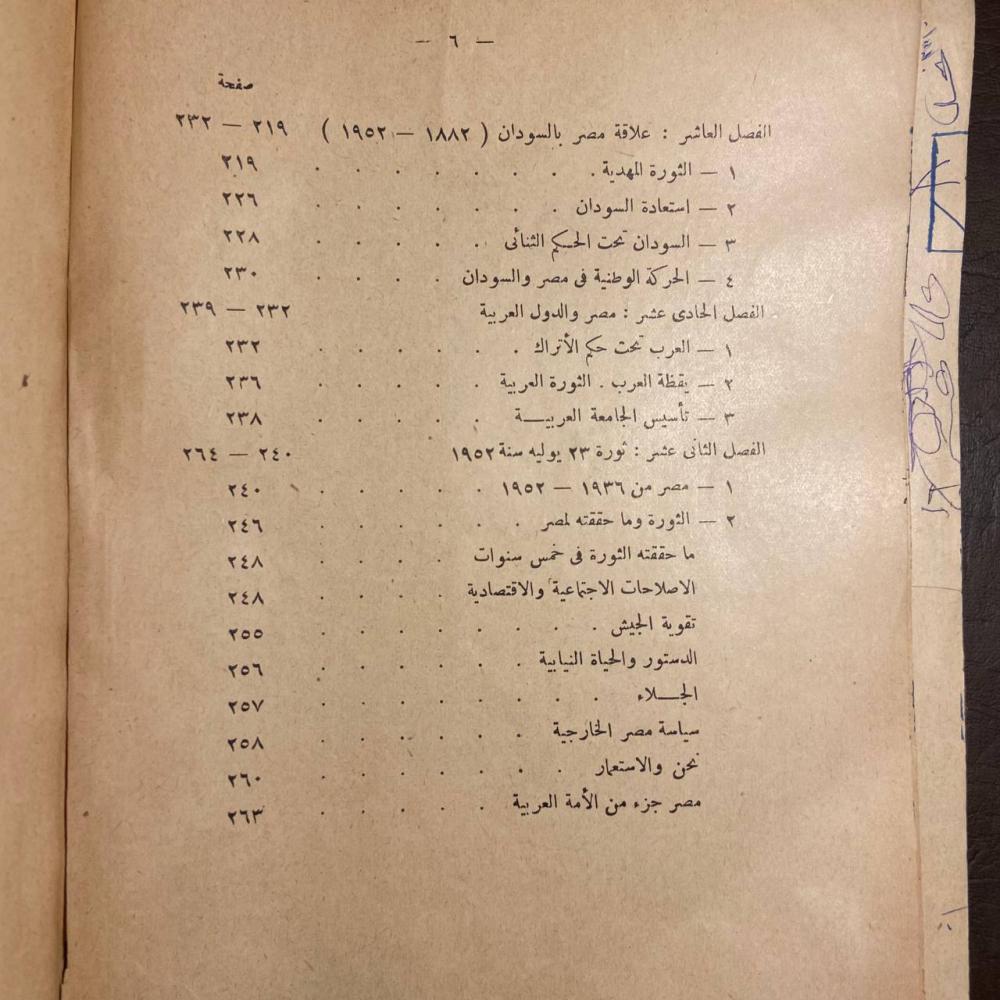 — ٦ —
صفحة
الفصل العاشر : علاقة مصر بالسودان ( ١٨٨٢ — ١٩٥٢ ) ٢١٩ — ٢٣٢
١ — الثورة المهدية . . . . . . . . ٢١٩
٢ — استعادة السودان . . . . . . . ٢٢٦
٣ — السودان تحت الحكم الثنائى . . . . . ٢٢٨
٤ — الحركة الوطنية فى مصر والسودان . . . . ٢٣٠
الفصل الحادى عشر : مصر والدول العربية ٢٣٢ — ٢٣٩
١ — العرب تحت حكم الأتراك . . . . . . ٢٣٢
٢ — يقظة العرب . الثورة العربية . . . . . ٢٣٦
٣ — تأسيس الجامعة العربيـــة . . . . . ٢٣٨
الفصل الثانى عشر : ثورة ٢٣ يوليه سنة ١٩٥٢ ٢٤٠ — ٢٦٤
١ — مصر من ١٩٣٦ — ١٩٥٢ . . . . . ٢٤٠
٢ — الثورة وما حققته لمصر . . . . . . ٢٤٦
ما حققته الثورة فى خمس سنوات . . . . ٢٤٨
الاصلاحات الاجتماعية والاقتصادية . . . . ٢٤٨
تقوية الجيش . . . . . . . . ٢٥٥
الدستور والحياة النيابية . . . . . . ٢٥٦
الجـــلاء . . . . . . . . ٢٥٧
سياسة مصر الخارجية . . . . . . ٢٥٨
نحن والاستعمار . . . . . . . ٢٦٠
مصر جزء من الأمة العربية . . . . . ٢٦٣